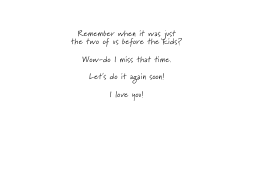 Remember when it was just
the two of us before the kids?
Wow-do I miss that time.
Let's do it again soon!
I love you!